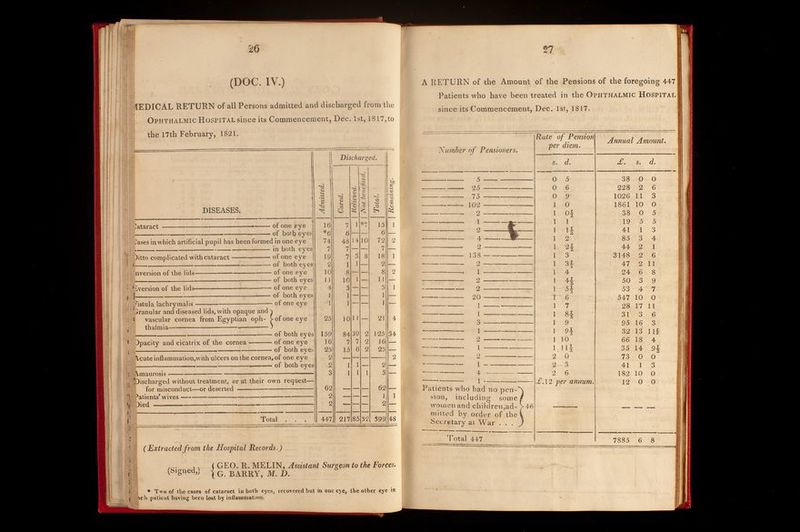 26
(DOC. IV.)
MEDICAL RETURN of all Persons admitted and discharged from the
OPHTHALMIC HOSPITAL since its Commencement, Dec. 1st, 1817, to
the 17th February, 1821.
DISEASES. Admitted. Discharged. Cured. Relieved. Not benefited. Total. Remaining.
Cataract — of one eye 16 7 1 *7 15 1
— of both eyes *6 6 — — 6 —
Cases in which artificial pupil has been formed in one eye 74 48 14 10 72 2
— in both eyes 7 7 — — 7 —
Ditto complicated with cataract — of one eye 19 7 3 8 18 1
— of both eyes 2 1 1 — 2 —
Inversion of the lids — of one eye 10 8 — — 8 2
— of both eyes 11 10 1 — 11 —
Eversion of the lids — of one eye 4 3 — — 3 1
— of both eyes 1 1 — — 1 —
Fistula lachrymalis — of one eye 1 1 — — 1 —
Granular and diseased lids, with opaque and
vascular cornea from Egyptian oph- } of one eye 25 10 11 — 21 4
thalmia
— of both eyes 159 84 39 2 125 34
Opacity and cicatrix of the cornea — of one eye 16 7 7 2 16 —
— of both eyes 25 15 6 2 23 —
Acute inflammation, with ulcers on the cornea, of one eye 2 — — — — 2
— of both eyes 2 1 1 — 2 —
Amaurosis 3 1 1 1 3 —
Discharged without treatment, or at their own request—
for misconduct—or deserted 62 — — — 62 —
Patients' wives 2 — — — 1 1
Died 2 — — — 2 —
Total . . . . 447 217 85 32 399 48
(Extracted from the Hospital Records.)
(Signed,) { GEO. R. MELIN, Assistant Surgeon to the Forces.
{ G. BARRY, M. D.
* Two of the cases of cataract in both eyes, recovered but in one eye, the other eye in
each patient having been lost by inflammation.
27
A RETURN of the Amount of the Pensions of the foregoing 447
Patients who have been treated in the OPHTHALMIC HOSPITAL
since its Commencement, Dec. 1st, 1817.
Number of Pensioners. Rate of Pension per diem. Annual Amount.
s. d. £. s. d.
5 0 5 38 0 0
25 0 6 228 2 6
75 0 9 1026 11 3
102 1 0 1861 10 0
2 1 0½ 38 0 5
1 1 1 19 5 5
2 1 1½ 41 1 3
4 1 2 85 3 4
2 1 2½ 44 2 1
138 1 3 3148 2 6
2 1 3½ 47 2 11
1 1 4 24 6 8
2 1 4½ 50 3 9
2 1 5½ 53 4 7
20 1 6 547 10 0
1 1 7 28 17 11
1 1 8½ 31 3 6
3 1 9 95 16 3
1 1 9½ 32 13 11½
2 1 10 66 18 4
1 1 11½ 35 14 9½
2 2 0 73 0 0
1 2 3 41 1 3
4 2 6 182 10 0
1 £.12 per annum. 12 0 0
Patients who had no pen-
sion, including some
women and children, ad- } 46
mitted by order of the
Secretary at War . . .
Total 447 7885 6 8